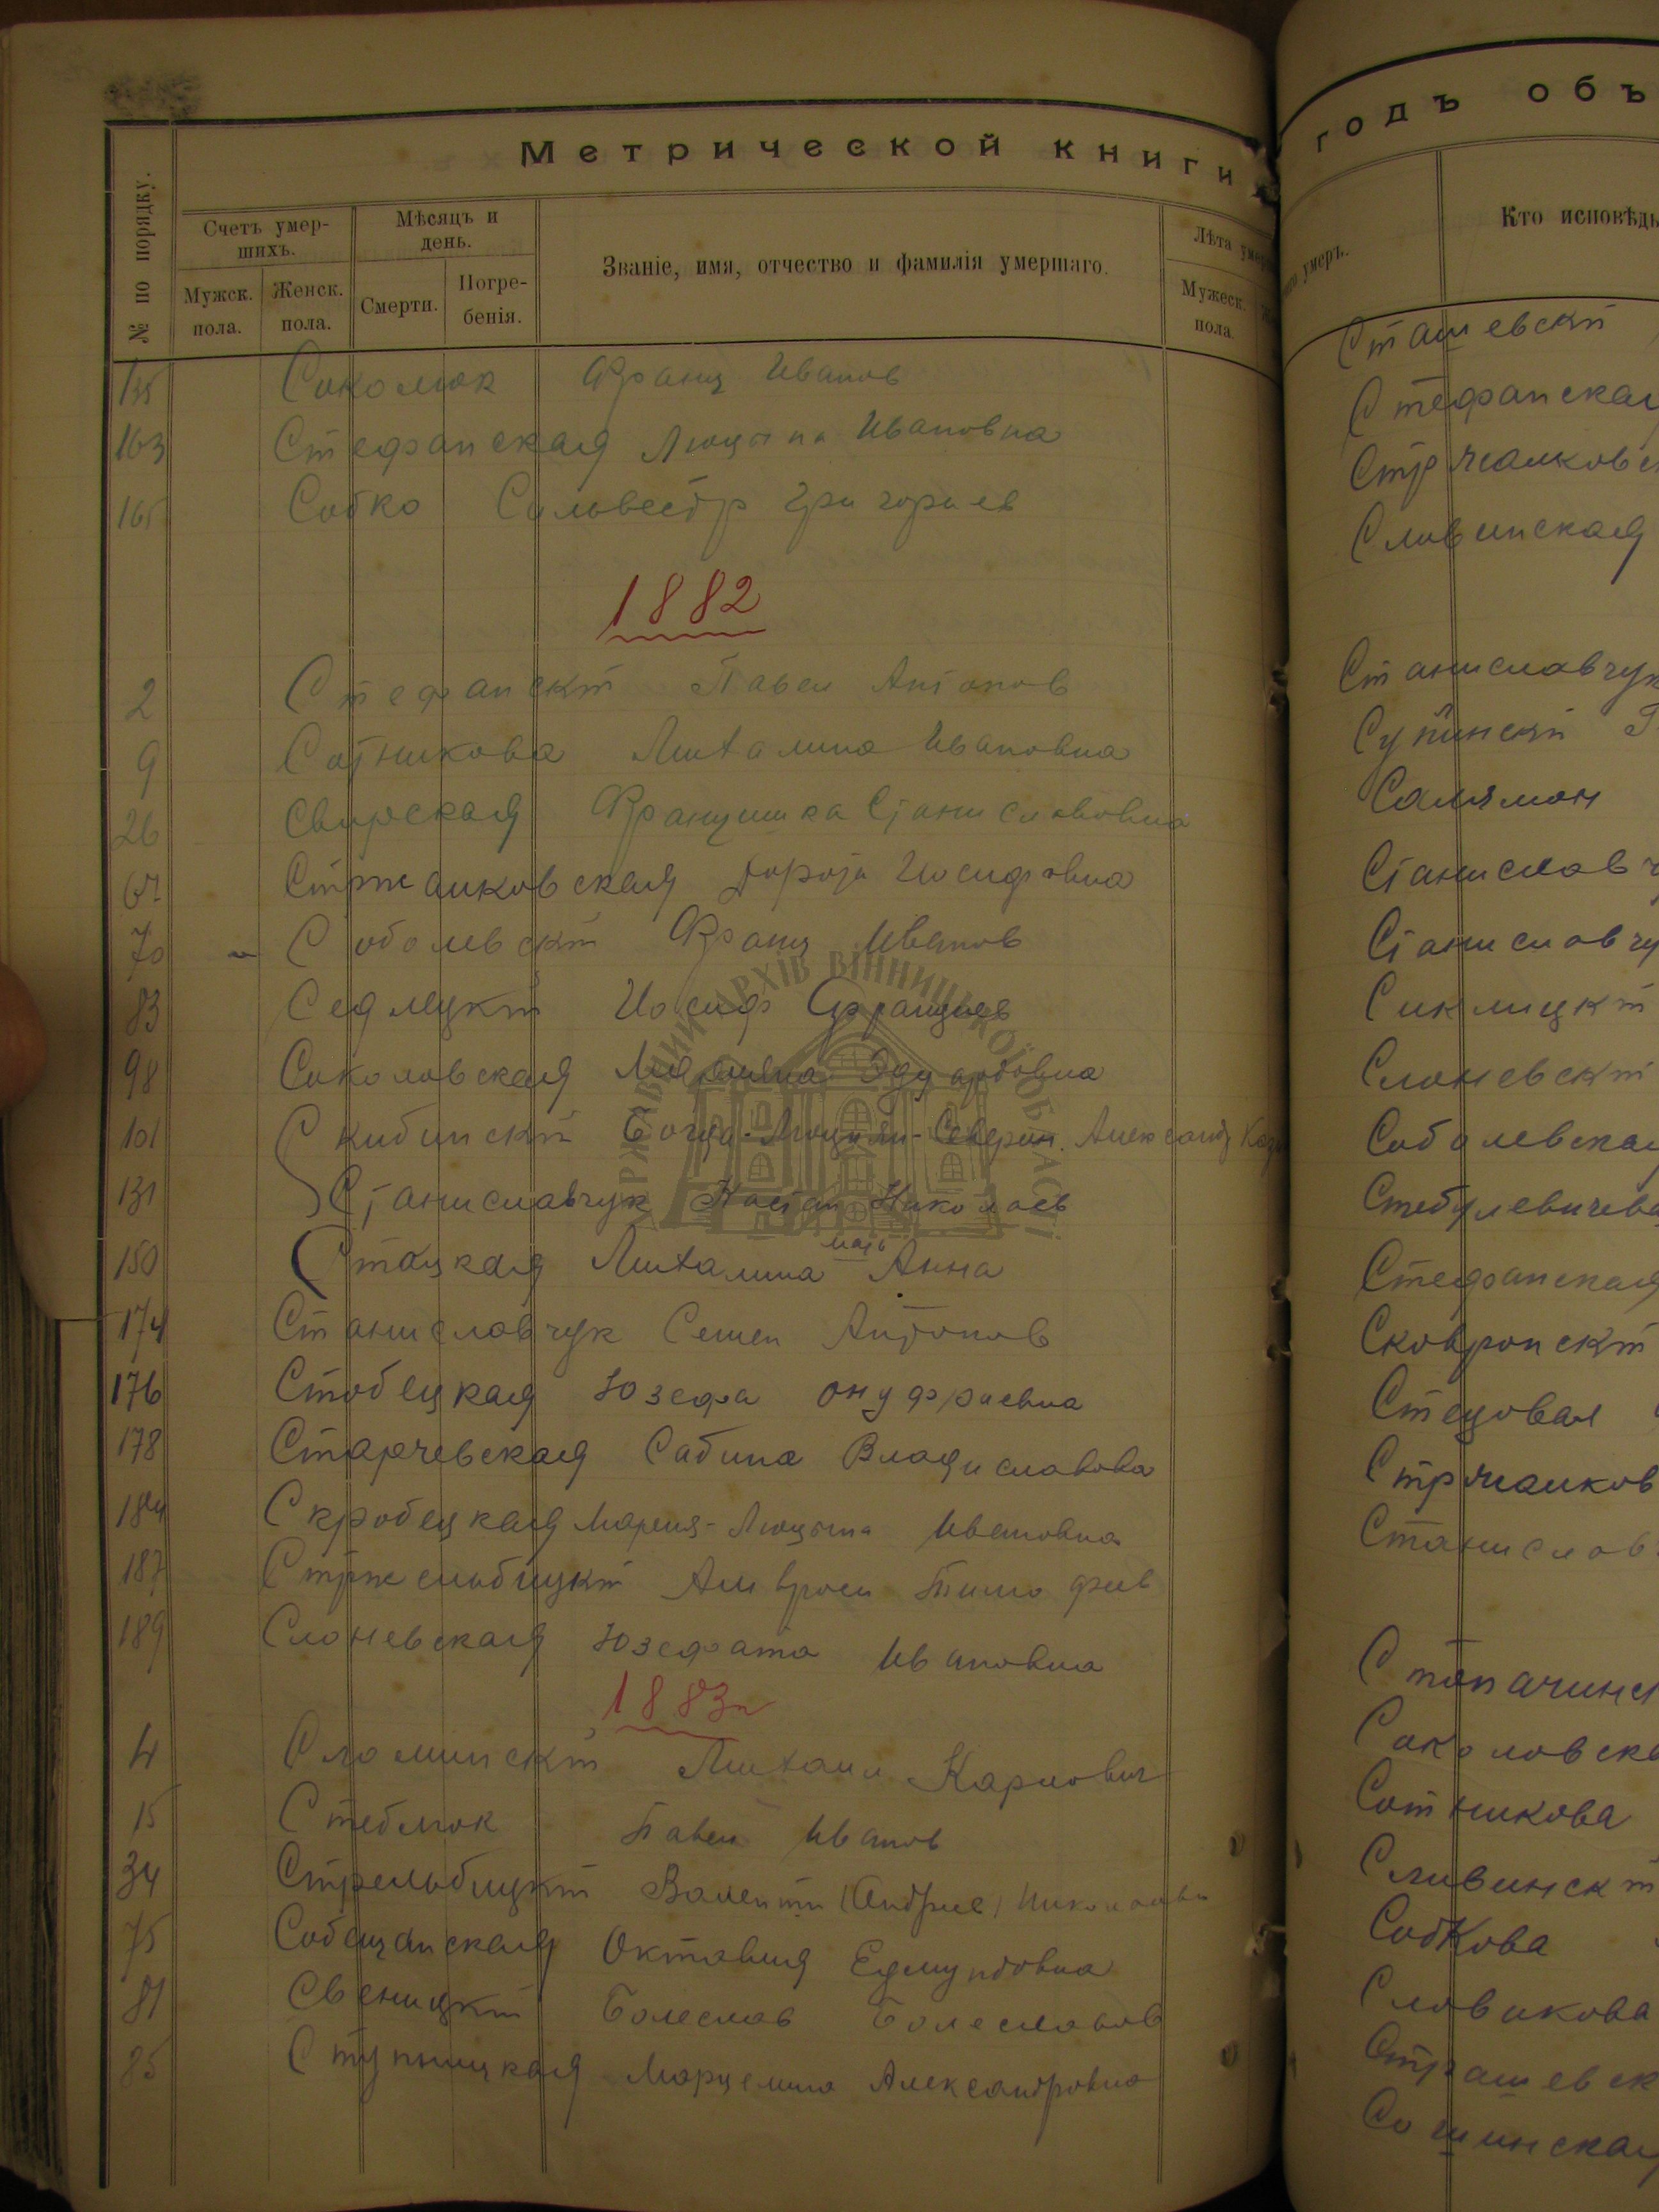 Метрической книги
№ по порядку.
Счетъ умер-
шихъ.
Мужск.
пола.
Женск.
пола.
Мѣсяцъ и
день.
Смерти.
Погре-
бенія.
Званіе, имя, отчество и фамилія умершаго.
Лѣта
Мужеск.
пола
135 Соколюк Франц Иванов
163 Стефанская Люцына Ивановна
165 Собко Сильвестр Григориев
1882
2 Стефанскій Павел Антонов
9 Сотникова Михалина Ивановна
26 Свирская Францишка Станиславовна
67 Стржалковская Дорота Иосифовна
70 Соболевскій Франц Иванов
83 Седлецкій Иосиф Францыев
98 Соколовская Марьяна Эдуардовна
101 Скибинскій Северин Александ
131 Станиславчук Костан Николаев
150 Стацкая Михалина мать Анна
174 Станиславчук Семен Антонов
176 Стобецкая Юзефа Онуфриевна
178 Старчевская Сабина Владиславова
184 Скробецкая Мария-Люцына Ивановна
187 Стржельбицкій Амвроси Тимофеев
189 Слоневская Юзефата Ивановна
1883
4 Сломинскій Михаил Карлович
15 Стеблюк Павел Иванов
34 Стрельбицкій Валенти (Андрие)
75 Собещанская Октавия Едмундовна
81 Свеницкій Болеслав Болеславов
85 Ступницкая Марцелина Александровна
годъ объ
умеръ.
Кто исповѣд
Сташевскій
Стефанская
Стржалковс
Словинская
Станиславчук
Супинскій
Салямон
Станиславч
Станиславчу
Сиклицкій
Слоневскій
Соболевская
Стебулевичева
Стефанская
Сковронскій
Стецовая
Стржалков
Станислав
Стопачинс
Соколовска
Сотникова
Сливинскій
Собкова
Словикова
Страшевск
Сошинская